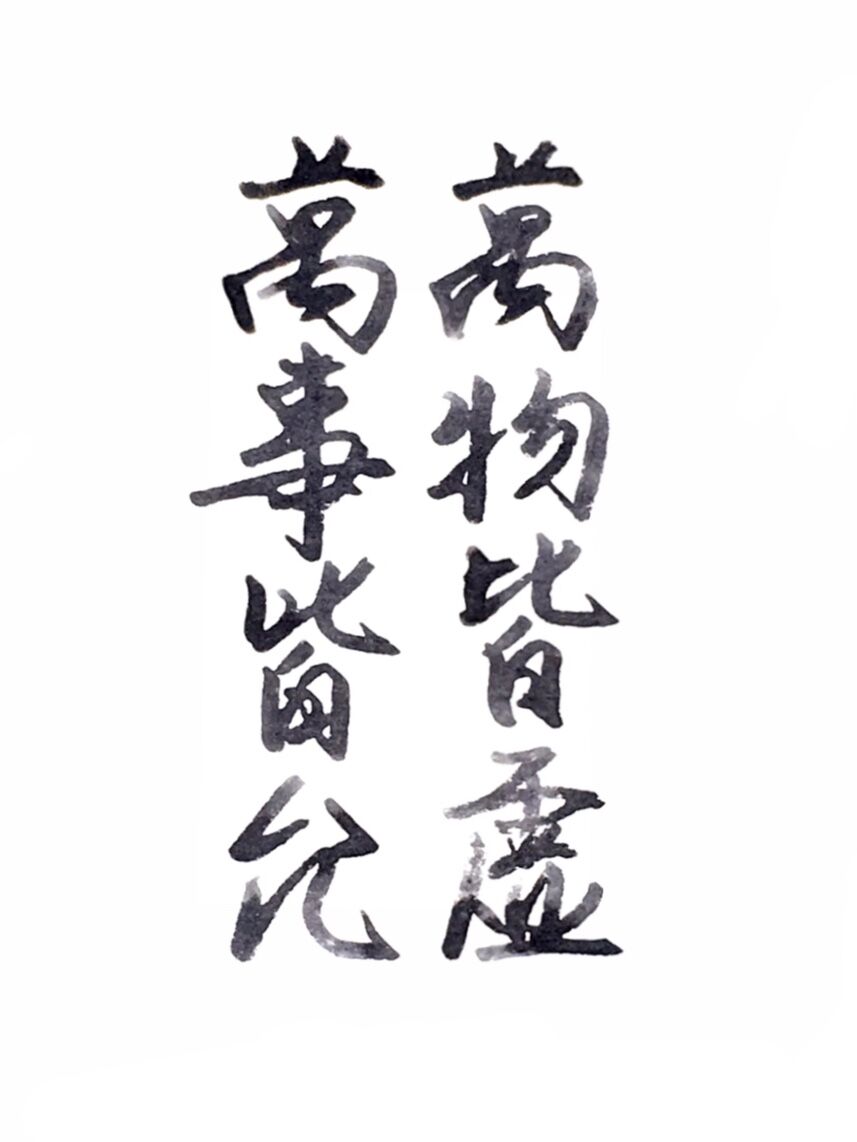 萬物皆虛
萬事皆允